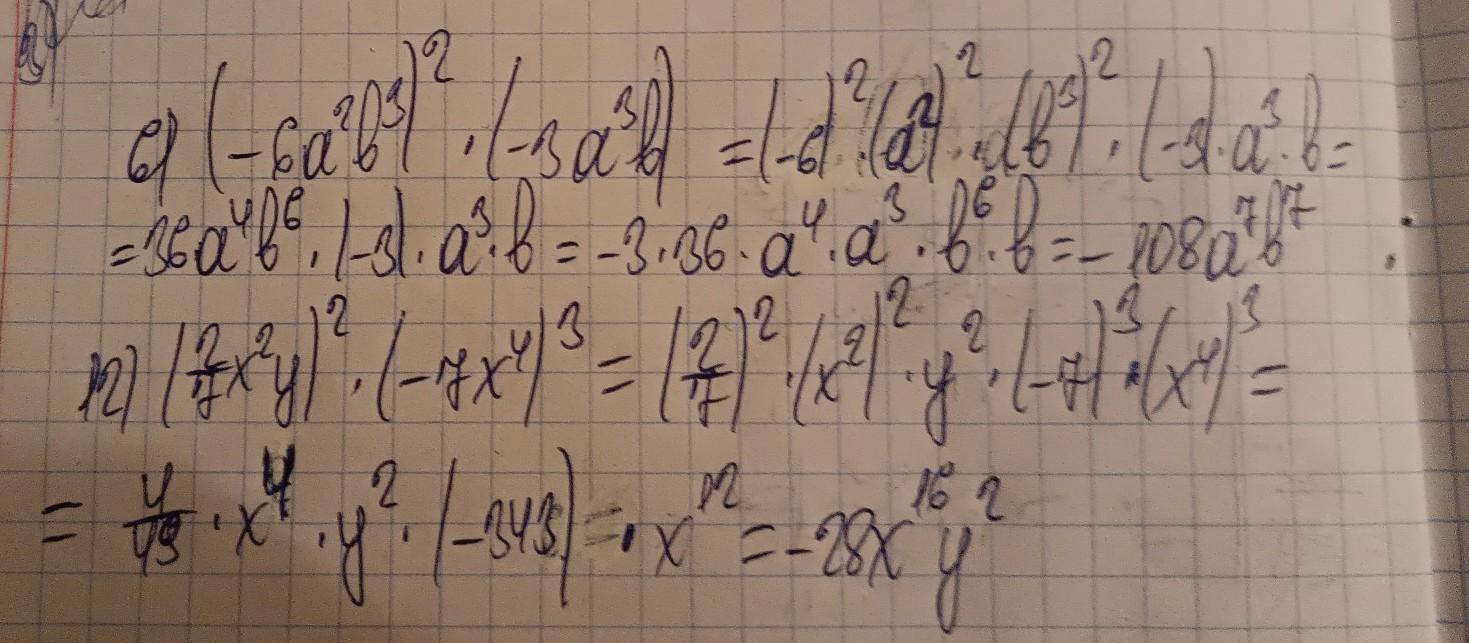 6) (-6a²b³)² · (-3a³b) = (-6)² · (a²)² · (b³)² · (-3) · a³ · b =
= 36a⁴b⁶ · (-3) · a³ · b = -3 · 36 · a⁴ · a³ · b⁶ · b = -108a⁷b⁷
12) (2/7x²y)² · (-7x⁴)³ = (2/7)² · (x²)² · y² · (-7)³ · (x⁴)³ =
= 4/49 · x⁴ · y² · (-343) · x¹² = -28x¹⁶y²